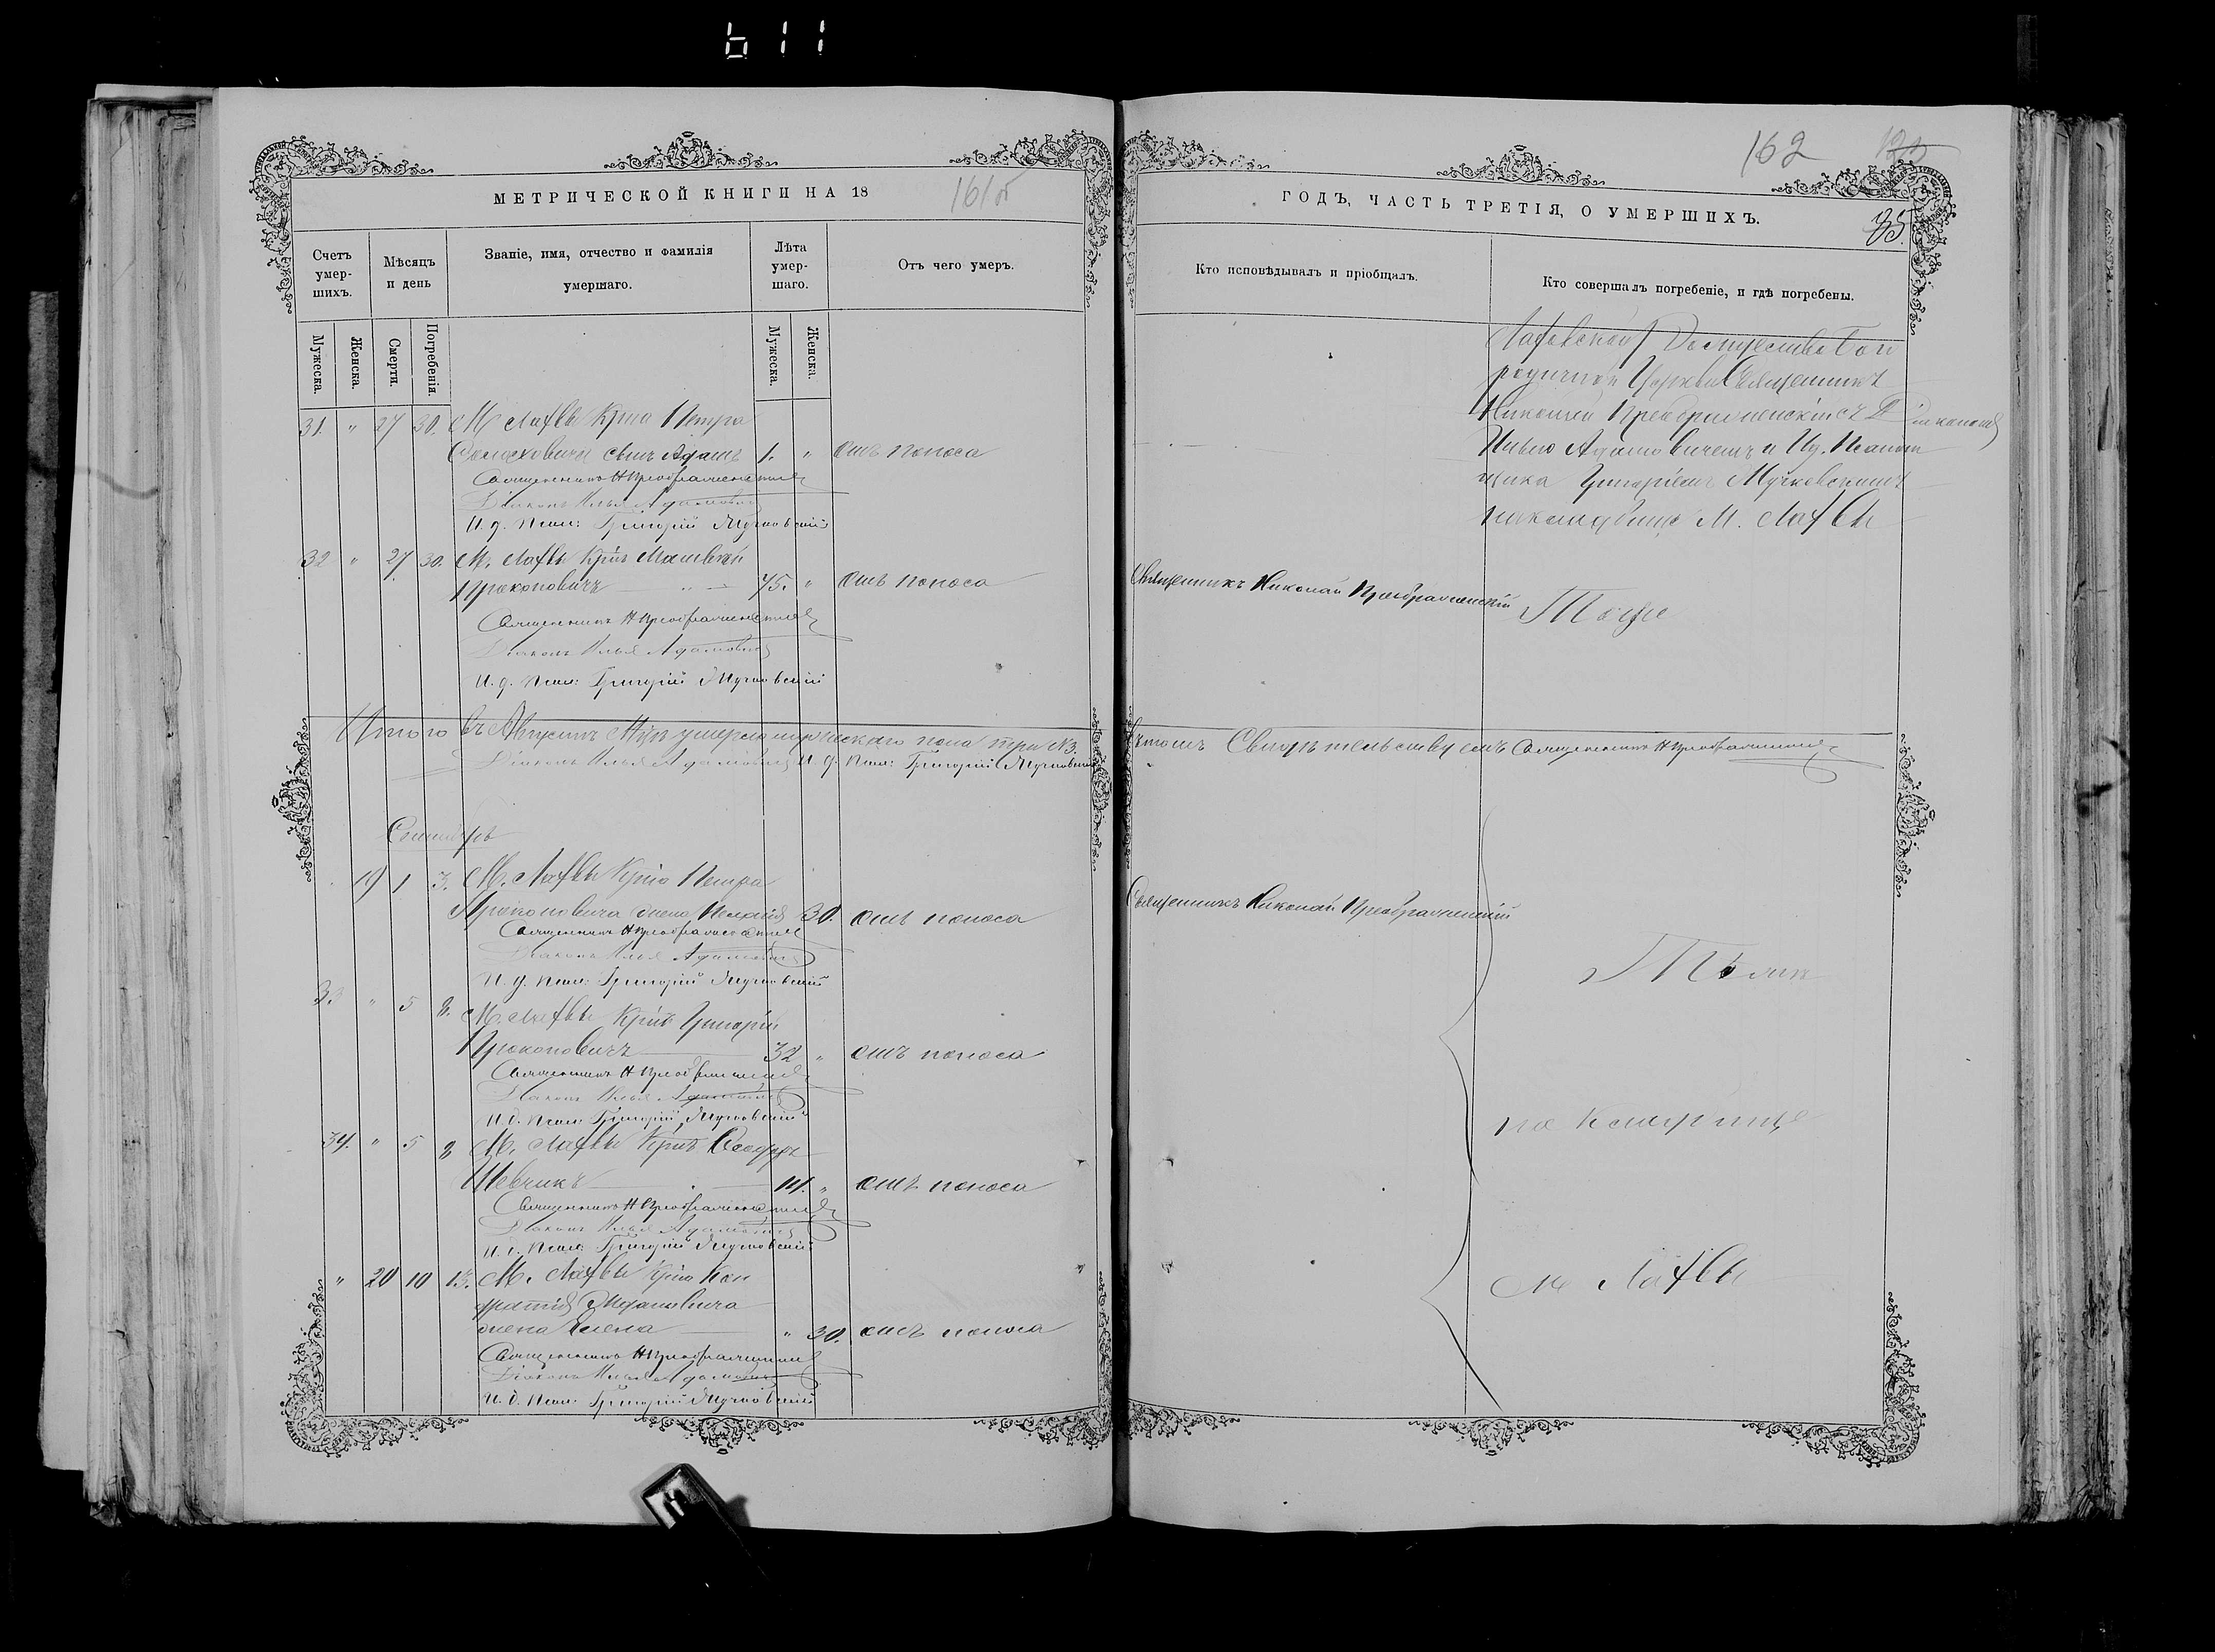 611
МЕТРИЧЕСКОЙ КНИГИ НА 18
161об
Счетъ умершихъ.
Мѣсяцъ и день
Званіе, имя, отчество и фамилія умершаго.
Лѣта умершаго.
Отъ чего умеръ.
Мужеска.
Женска.
Смерти.
Погребенія.
Мужеска.
Женска.
31. " 27 30. М. Лахвы Крна Петра
сынъ Адамъ 1. " отъ поноса
Священникъ Н Преображенскій
Діаконъ Илья Адамовичъ
И. д. Псал: Григорій Мучковскій
32 " 27 30. М. Лахвы Крнъ Матвѣй
Прокоповичъ 75. " отъ поноса
Священникъ Н Преображенскій
Діаконъ Илья Адамовичъ
И. д. Псал: Григорій Мучковскій
Итого въ Августѣ Мцѣ умерло мужескаго пола три № 3.
Діаконъ Илья Адамовичъ И. д. Псал: Григорій Мучковскій
Сентябрь
19 1 3. М. Лахвы Крна Петра
Прокоповича жена Пелагія 30. отъ поноса
Священникъ Н Преображенскій
Діаконъ Илья Адамовичъ
И. д. Псал: Григорій Мучковскій
33 " 5 8. М. Лахвы Крнъ Григорій
Прокоповичъ 32 " отъ поноса
Священникъ Н Преображенскій
Діаконъ Илья Адамовичъ
И. д. Псал: Григорій Мучковскій
34. " 5 8 М. Лахвы Крнъ
Шевчикъ " отъ поноса
Священникъ Н Преображенскій
Діаконъ Илья Адамовичъ
И. д. Псал: Григорій Мучковскій
" 20 10 13. М. Лахвы Крна Кон
дратія
жена Елена " 30. отъ поноса
Священникъ Н Преображенскій
Діаконъ Илья Адамовичъ
И. д. Псал: Григорій Мучковскій
162
ГОДЪ, ЧАСТЬ ТРЕТІЯ, О УМЕРШИХЪ.
35.
Кто исповѣдывалъ и пріобщалъ.
Кто совершалъ погребеніе, и гдѣ погребены.
Лахвской Рождество Бого
родичной Церкви Священникъ
Николай Преображенскій съ Діакономъ
Ильею Адамовичемъ и И.д. Псалом
щика Григоріемъ Мучковскимъ
на кладбищѣ М. Лахвы
Священникъ Николай Преображенскій
Тоже
въ томъ Свидѣтельствуемъ Священникъ Н Преображенскій
Священникъ Николай Преображенскій
Тѣже
на кладбищѣ
м Лахвы